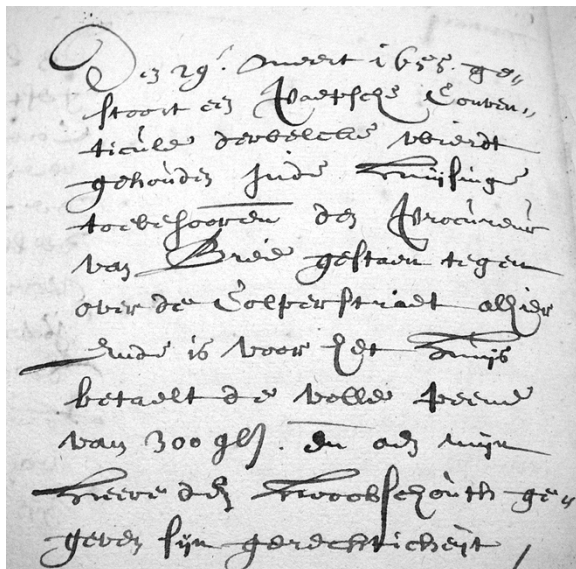 Den 29.' Meert 1655. ge„
stoort een Paepsche Conven„
ticule derwelcke wierdt
gehouden inde Huijsinge
toebehooren den Procureur
van Breé gestaen tegen
over de Colperstraet alhier
Ende is voor het Huijs
betaelt de volle peene
van 300 gls. En aen mijn
Heere den Hoobschouth ge„
geven sijn gerechticheijt /